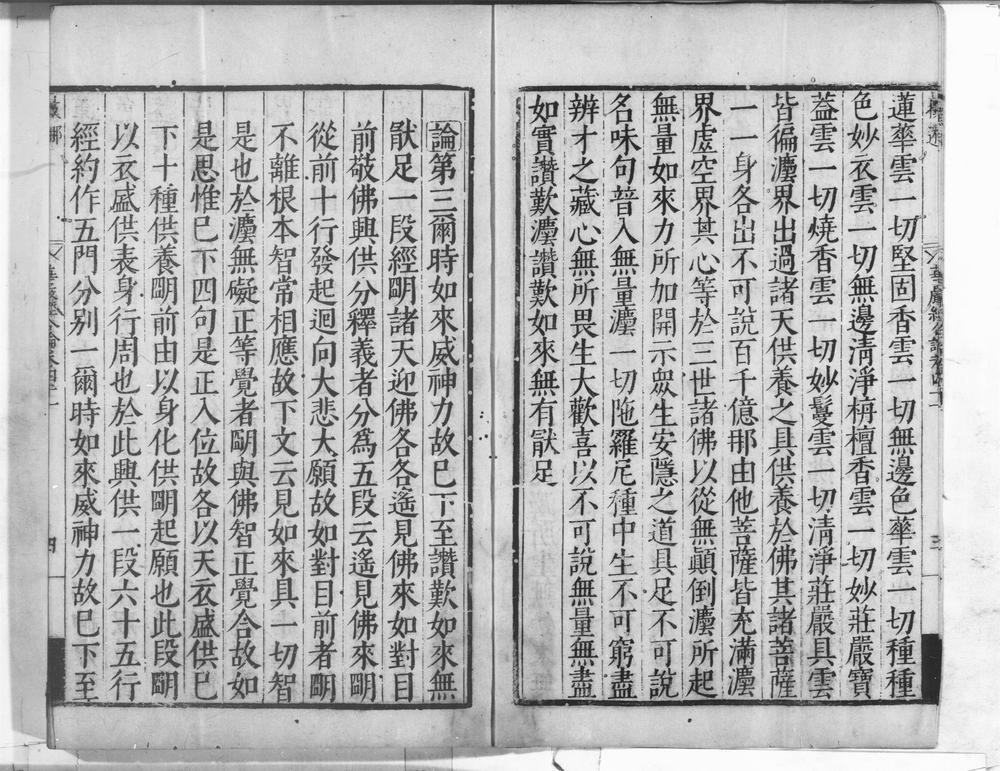 蓮華雲一切堅固香雲一切無邊色華雲一切種種
色妙衣雲一切無邊淸淨栴檀香雲一切妙莊嚴寶
蓋雲一切燒香雲一切妙鬘雲一切淸淨莊嚴具雲
皆徧灋界出過諸天供養之具供養於佛其諸菩薩
一一身各出不可說百千億那由他菩薩皆充滿灋
界虛空界其心等於三世諸佛以從無顚倒灋所起
無量如來力所加開示眾生安隱之道具足不可說
名味句普入無量灋一切陁羅尼種中生不可窮盡
辨才之藏心無所畏生大歡喜以不可說無量無盡
如實讚歎灋讚歎如來無有猒足
論第三爾時如來威神力故巳下至讚歎如來無
猒足一段經朙諸天迎佛各各遙見佛來如對目
前敬佛興供分釋義者分爲五段云遙見佛來朙
從前十行發起迴向大悲大願故如對目前者朙
不離根本智常相應故下文云見如來具一切智
是也於灋無礙正等覺者朙與佛智正覺合故如
是思惟巳下四句是正入位故各以天衣盛供巳
下十種供養朙前由以身化供朙起願也此段朙
以衣盛供表身行周也於此興供一段六十五行
經約作五門分別一爾時如來威神力故巳下至
三
四